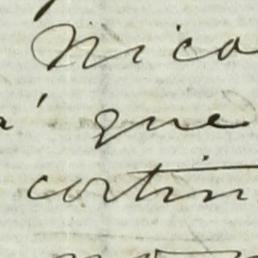 Nica
a' que
cortin